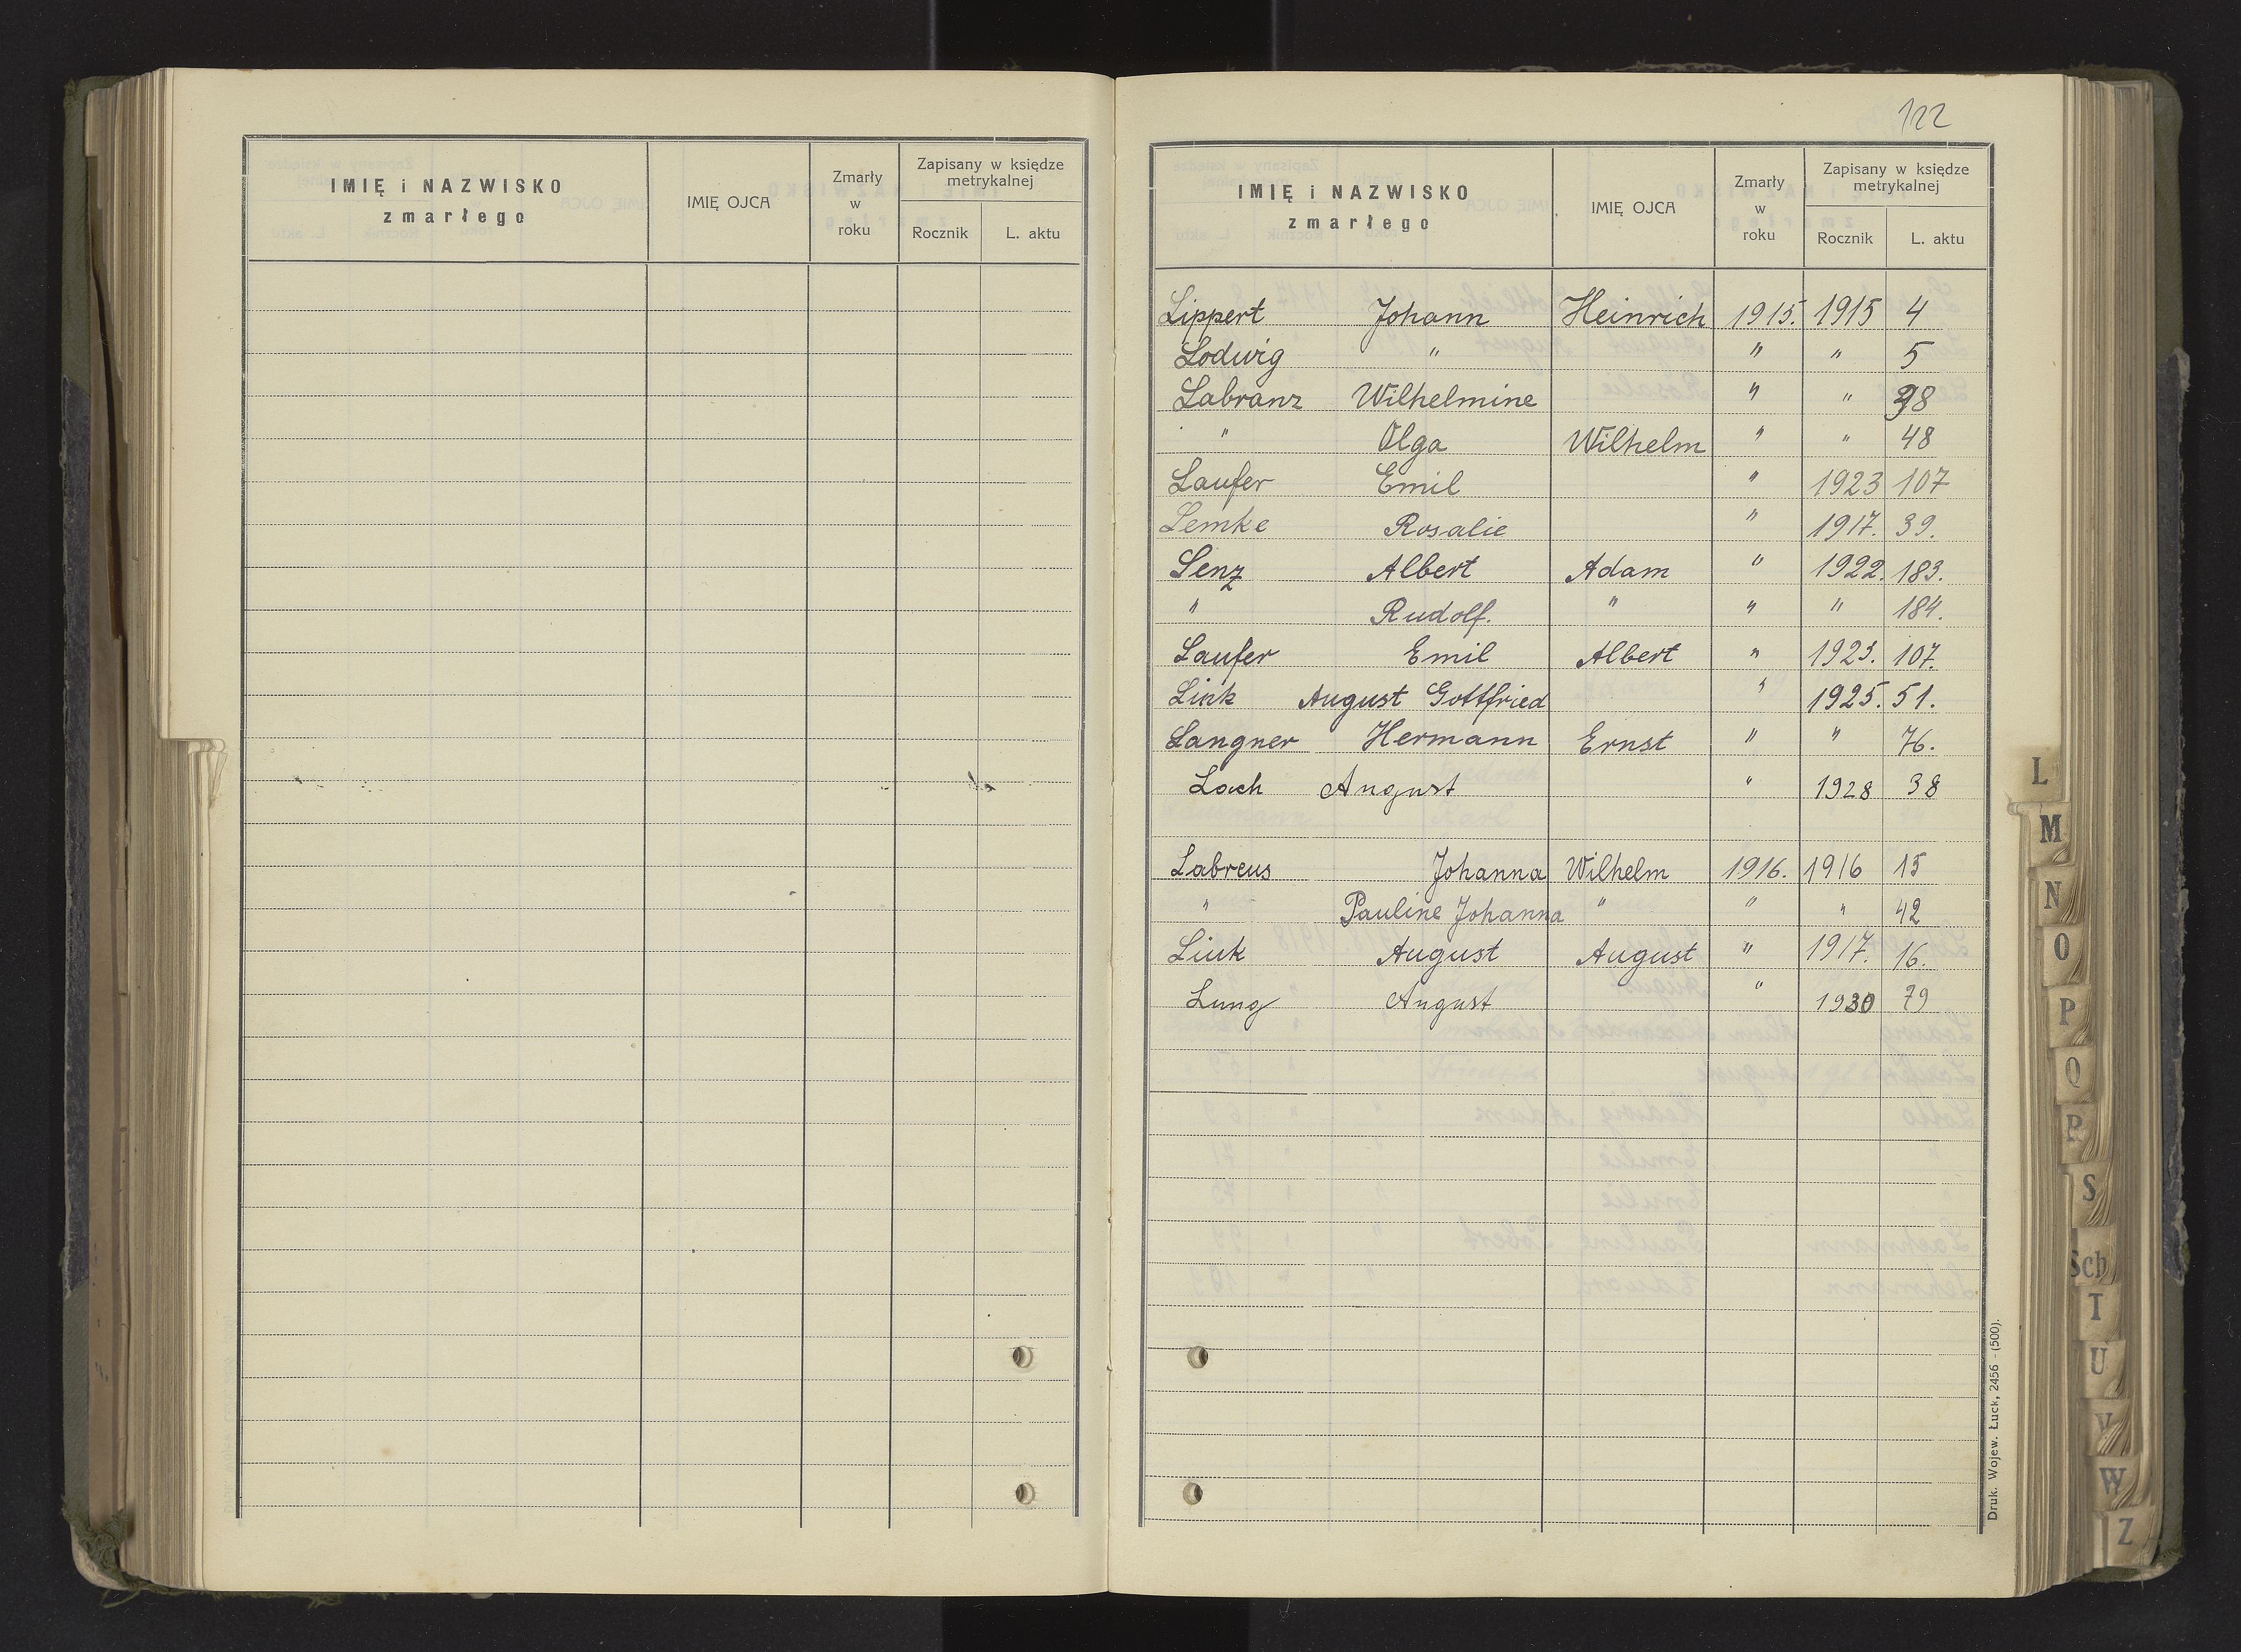 IMIĘ i NAZWISKO
zmarłego
IMIĘ OJCA
Zmarły
w
roku
Zapisany w księdze
metrykalnej
Rocznik
L. aktu
122
IMIĘ i NAZWISKO
zmarłego
IMIĘ OJCA
Zmarły
w
roku
Zapisany w księdze
metrykalnej
Rocznik
L. aktu
Lippert Johann Heinrich 1915. 1915 4
Lodwig " " " 5
Labranz Wilhelmine " " 38
" Olga Wilhelm " " 48
Laufer Emil " 1923 107
Lemke Rosalie " 1917. 39.
Lenz Albert Adam " 1922. 183.
" Rudolf. " " " 184.
Laufer Emil Albert " 1923. 107.
Link August Gottfried " 1925. 51.
Langner Hermann Ernst " " 76.
Loch August " 1928 38
Labreus Johanna Wilhelm 1916. 1916 15
" Pauline Johanna " " " 42
Link August August " 1917. 16.
Lung August " 1930 79
Druk. Wojew. Łuck, 2456 - (500).
L
M
N
O
P
Q
R
S
Sch
T
U
V
W
Z